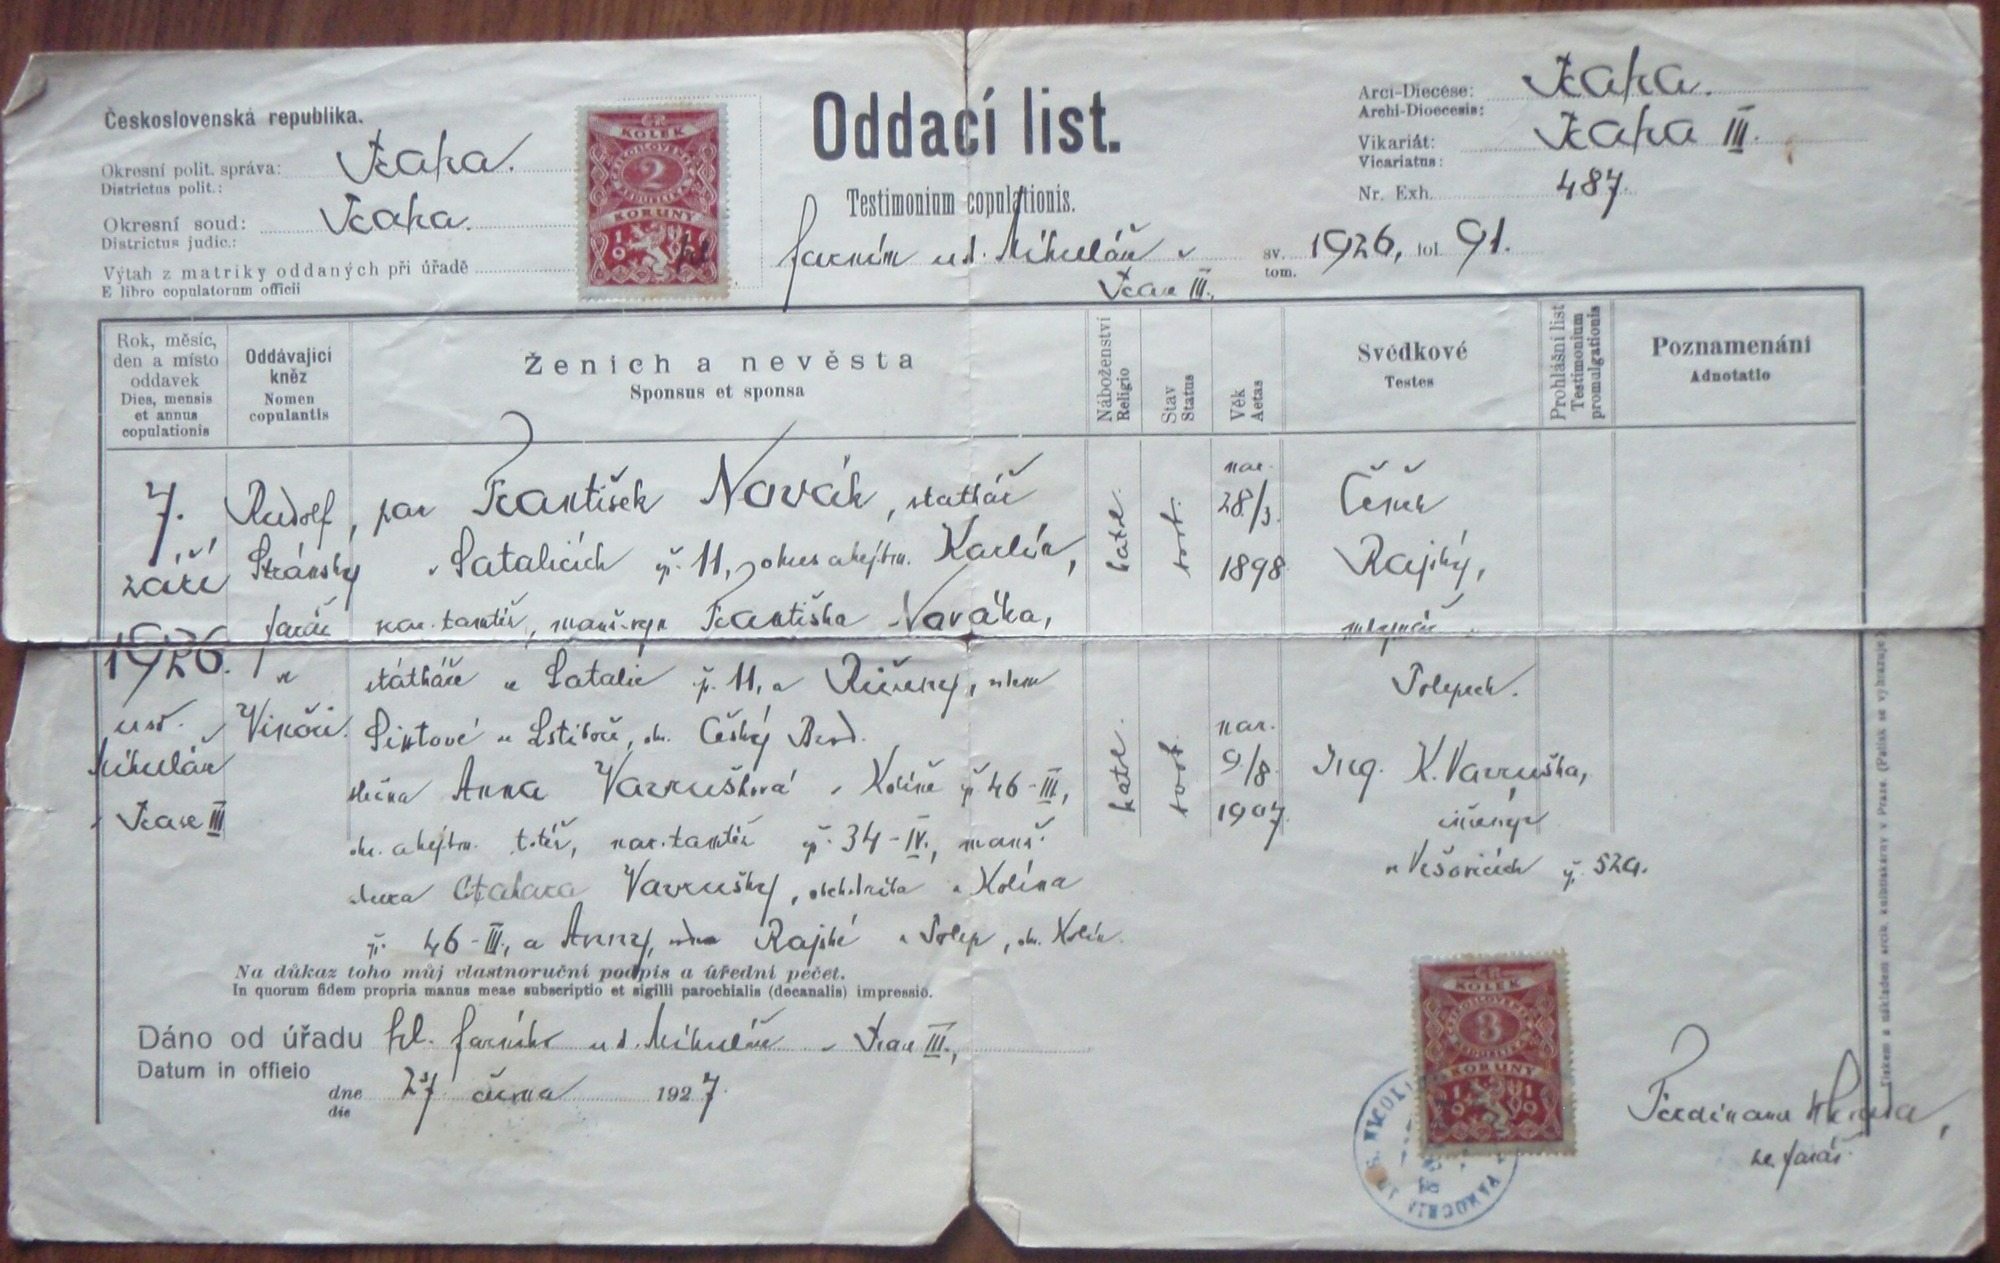 Československá republika.
Okresní polit. správa: Praha.
Districtus polit.:
Okresní soud: Praha.
Districtus judic.:
Výtah z matriky oddaných při úřadě
E libro copulatorum officii
ČR.
KOLEK
2
KORUNY
1919
Oddací list.
Testimonium copulationis.
farním u sv. Mikuláše v
Praze III.
Arci-Diecése: Praha.
Archi-Dioecesis:
Vikariát: Praha III.
Vicariatus:
Nr. Exh. 487
sv. 1926, fol. 91.
tom.
Rok, měsíc,
den a místo
oddavek
Dies, mensis
et annus
copulationis
Oddávající
kněz
Nomen
copulantis
Ženich a nevěsta
Sponsus et sponsa
Náboženství
Religio
Stav
Status
Věk
Aetas
Svědkové
Testes
Prohlášní list
Testimonium
promulgationis
Poznamenání
Adnotatio
7.
září
1926.
u sv.
Mikuláše
v Praze III
Rudolf
Stránský
farář
v
Vinoři.
pan František Novák, statkář
v Satalicích čp. 11, okres a hejtm. Karlín,
nar. tamtéž, manž. syn Františka Nováka,
statkáře v Satalic čp. 11, a
Cístové z Lstiboře, okr. Český Brod.
slečna Anna Vavrušková v Kolíně čp 46-III,
okr. a hejtm. totéž, nar. tamtéž čp. 34-IV., manž.
dcera Otakara Vavrušky, obchodníka v Kolína
čp. 46-III, a Anny, roz. Rajské z Polep, okr. Kolín.
katol.
svob.
nar.
28/3.
1898
katol.
svob.
nar.
9/8
1907.
Čeněk
Rajský,
mlynář
Polepech.
Ing. K. Vavruška,
inženýr
v Vršovicích čp. 529.
Na důkaz toho můj vlastnoruční podpis a úřední pečeť.
In quorum fidem propria manus meae subscriptio et sigilli parochialis (decanalis) impressio.
Dáno od úřadu farního u sv. Mikuláše v Praze III.,
Datum in officio
dne 27 června 1927.
die
ČR.
KOLEK
3
KORUNY
1919
Ferdinand
farář.